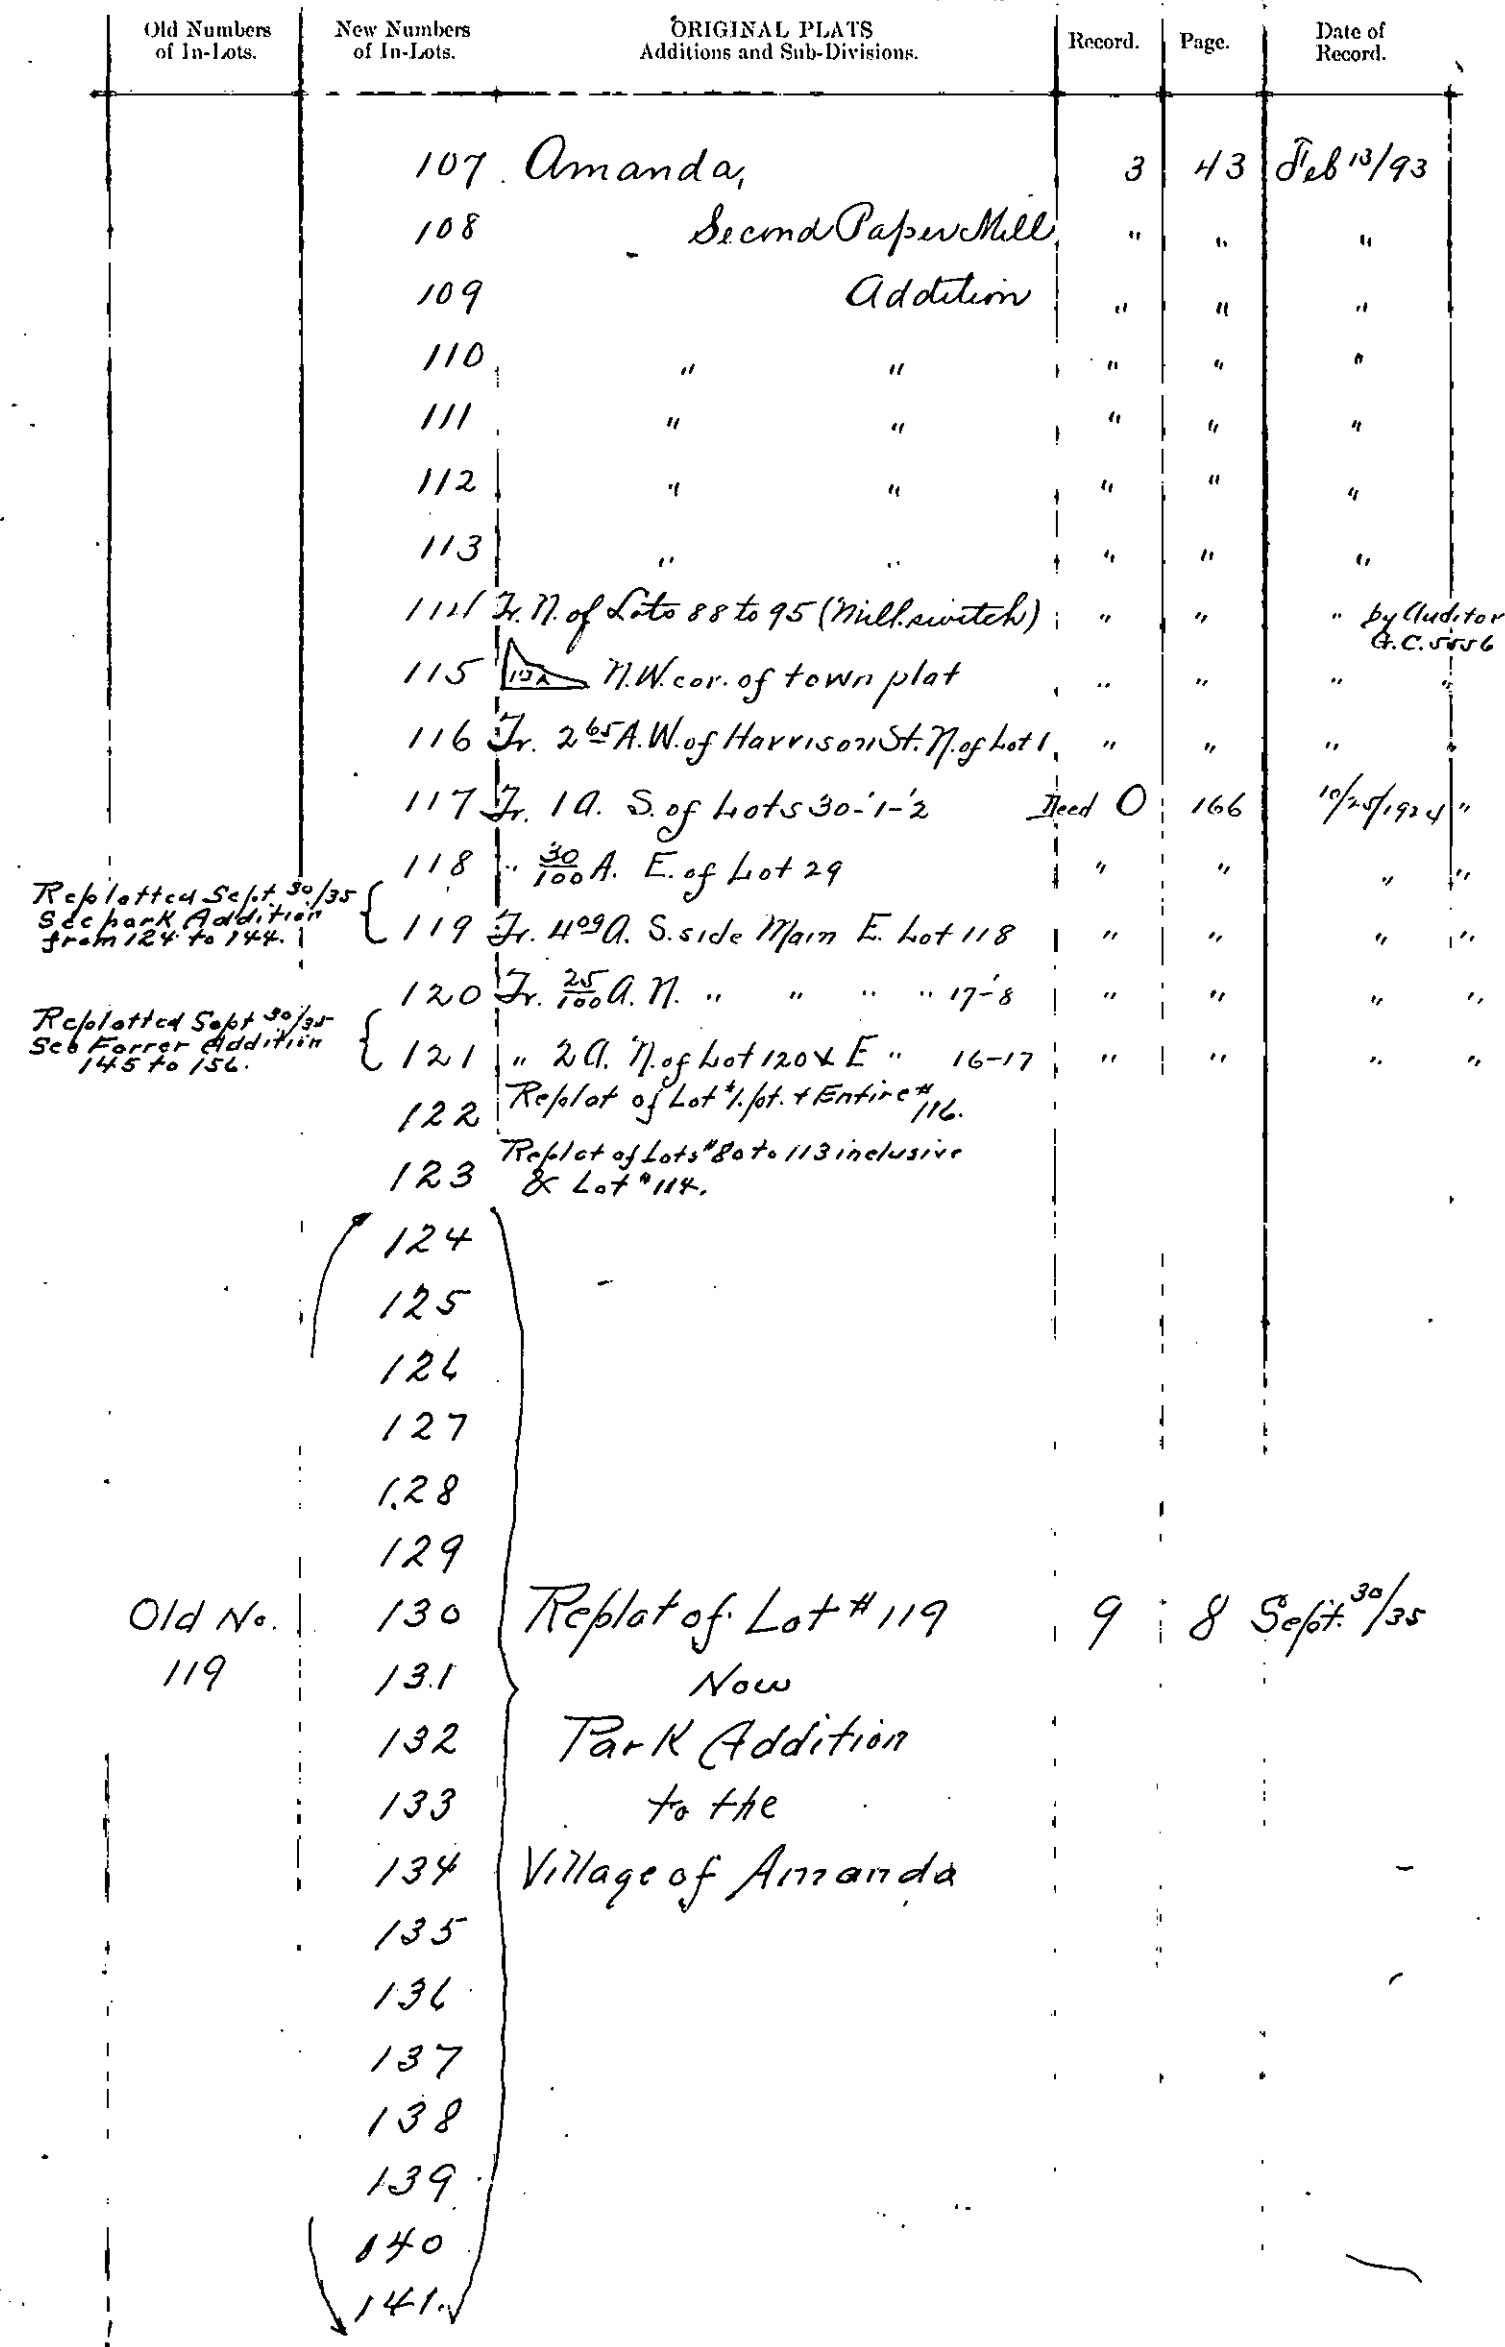 Old Numbers of In-Lots. New Numbers of In-Lots. ORIGINAL PLATS Additions and Sub-Divisions. Record. Page. Date of Record.
107 Amanda, 3 43 Feb 13/93
108 Second Paper Mill " " "
109 Addition " " "
110 " " " " "
111 " " " " "
112 " " " " "
113 " " " " "
114 Tr. N. of Lots 88 to 95 (Mill switch) " " " by Auditor G.C. 5556
115 N.W. cor. of town plat " " " "
116 Tr. 2 65 A. W. of Harrison St. N. of Lot 1 " " " "
117 Tr. 1 A. S. of Lots 30-'1-'2 Deed O 166 10/25/1924 "
118 " 30/100 A. E. of Lot 29 " " " "
Replotted Sept. 30/35
See park Addition
from 124 to 144.
119 Tr. 4 09 A. S. side Main E. Lot 118 " " " "
120 Tr. 25/100 A. N. " " " " 17-'8 " " " "
Replotted Sept 30/35
See Forrer Addition
145 to 156.
121 " 2 A. N. of Lot 120 & E " 16-17 " " " "
122 Replat of Lot #1. pt. + Entire # 116.
123 Replat of Lots #80 to 113 inclusive
& Lot #114.
124
125
126
127
128
129
Old No. 130 Replat of Lot # 119 9 8 Sept. 30/35
119 131 Now
132 Park Addition
133 to the
134 Village of Amanda
135
136
137
138
139
140
141